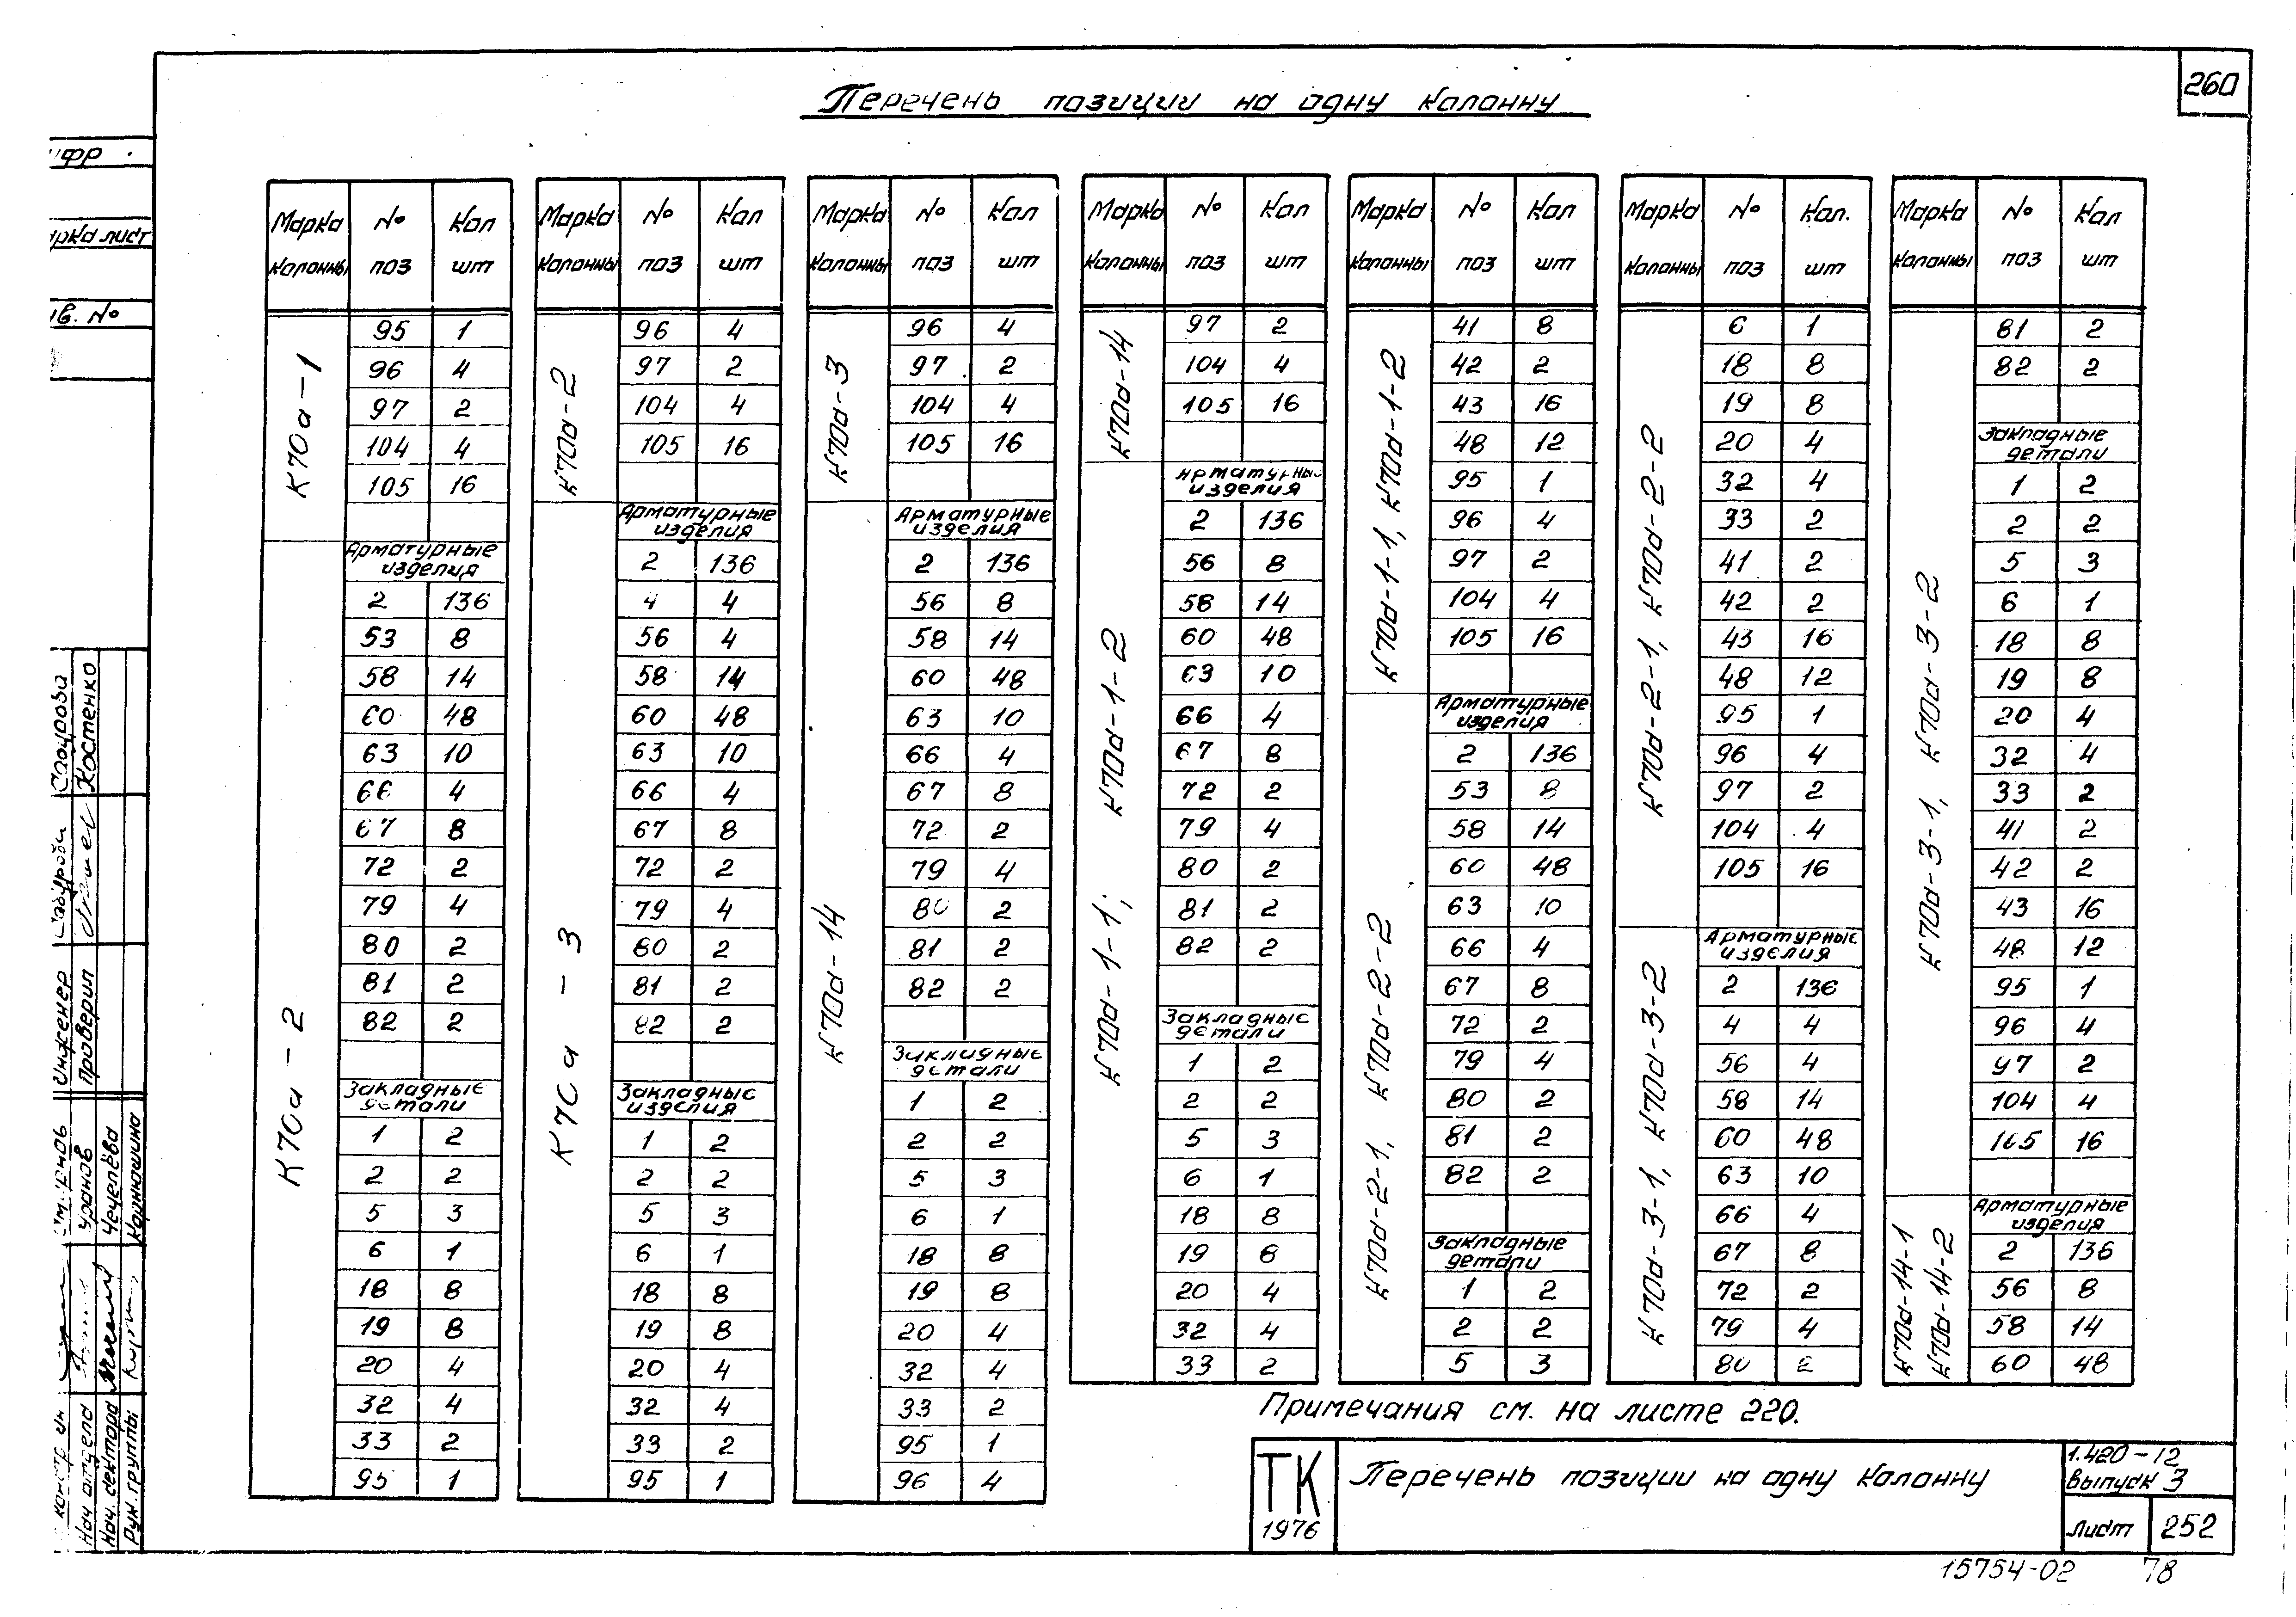 260
Перечень позиции на одну колонну
ифр
рка лист
ив. №
Марка колонны № поз Кол шт
К70а-1
95 1
96 4
97 2
104 4
105 16
К70а-2
Арматурные
изделия
2 136
53 8
58 14
60 48
63 10
66 4
67 8
72 2
79 4
80 2
81 2
82 2
Закладные
детали
1 2
2 2
5 3
6 1
18 8
19 8
20 4
32 4
33 2
95 1
Марка колонны № поз Кол шт
К70а-2
96 4
97 2
104 4
105 16
К70а-3
Арматурные
изделия
2 136
4 4
56 4
58 14
60 48
63 10
66 4
67 8
72 2
79 4
80 2
81 2
82 2
Закладные
изделия
1 2
2 2
5 3
6 1
18 8
19 8
20 4
32 4
33 2
95 1
Марка колонны № поз Кол шт
К70а-3
96 4
97 2
104 4
105 16
К70а-14
Арматурные
изделия
2 136
56 8
58 14
60 48
63 10
66 4
67 8
72 2
79 4
80 2
81 2
82 2
Закладные
детали
1 2
2 2
5 3
6 1
18 8
19 8
20 4
32 4
33 2
95 1
96 4
Марка колонны № поз Кол шт
К70а-14
97 2
104 4
105 16
К70а-1-1; К70а-1-2
Арматурны
изделия
2 136
56 8
58 14
60 48
63 10
66 4
67 8
72 2
79 4
80 2
81 2
82 2
Закладные
детали
1 2
2 2
5 3
6 1
18 8
19 8
20 4
32 4
33 2
Марка колонны № поз Кол шт
К70а-1-1, К70а-1-2
41 8
42 2
43 16
48 12
95 1
96 4
97 2
104 4
105 16
К70а-2-1, К70а-2-2
Арматурные
изделия
2 136
53 8
58 14
60 48
63 10
66 4
67 8
72 2
79 4
80 2
81 2
82 2
Закладные
детали
1 2
2 2
5 3
Марка колонны № поз Кол. шт
К70а-2-1, К70а-2-2
6 1
18 8
19 8
20 4
32 4
33 2
41 2
42 2
43 16
48 12
95 1
96 4
97 2
104 4
105 16
К70а-3-1, К70а-3-2
Арматурные
изделия
2 136
4 4
56 4
58 14
60 48
63 10
66 4
67 8
72 2
79 4
80 2
Марка колонны № поз Кол шт
К70а-3-1, К70а-3-2
81 2
82 2
Закладные
детали
1 2
2 2
5 3
6 1
18 8
19 8
20 4
32 4
33 2
41 2
42 2
43 16
48 12
95 1
96 4
97 2
104 4
105 16
К70а-14-1
К70а-14-2
Арматурные
изделия
2 136
56 8
58 14
60 48
Примечания см. на листе 220.
ТК
1976
Перечень позиции на одну колонну
1.420-12
выпуск 3
Лист 252
15754-02 78
Инженер
Проверил Костенко
Нач отдела
Нач. сектора Чечелёва
Рук. группы Корнюшина